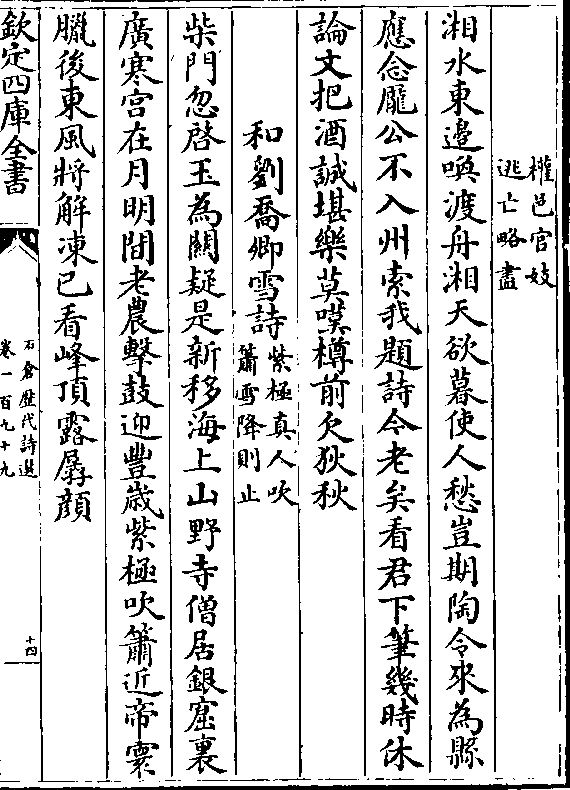 權邑官妓
逃亡略盡
湘水東邉喚渡舟湘天欲暮使人愁豈期陶令來為縣
應念龐公不入州索我題詩今老矣看君下筆幾時休
論文把酒誠堪樂莫嘆樽前欠狄秋
和劉喬卿雪詩紫極真人吹
簫雪降則止
柴門忽啓玉為關疑是新移海上山野寺僧居銀窟裏
廣寒宫在月明間老農擊鼓迎豐歳紫極吹簫近帝寰
臘後東風將解凍已看峰頂露孱顔
欽定四庫全書
石倉歴代詩選
卷一百九十九
十四